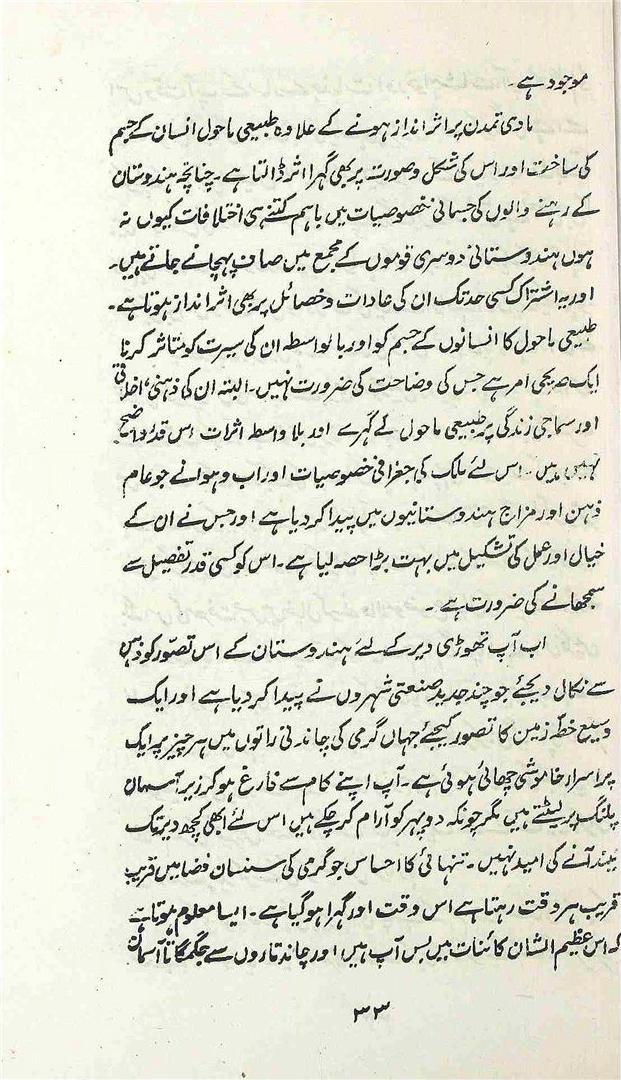 موجود ہے۔
مادی تمدن پر اثر انداز ہونے کے علاوہ طبیعی ماحول انسان کے جسم
کی ساخت اور اس کی شکل و صورت پر بھی گہرا اثر ڈالتا ہے۔ چنانچہ ہندوستان
کے رہنے والوں کی جسمانی خصوصیات میں باہم کتنے ہی اختلافات کیوں نہ
ہوں ہندوستانی دوسری قوموں کے مجمع میں صاف پہچانے جاتے ہیں۔
اور یہ اشتراک کسی حد تک ان کی عادات و خصائل پر بھی اثر انداز ہوتا ہے۔
طبیعی ماحول کا انسانوں کے جسم کو اور بالواسطہ ان کی سیرت کو متاثر کرنا
ایک صریحی امر ہے جس کی وضاحت کی ضرورت نہیں۔ البتہ ان کی ذہنی، اخلاقی
اور سماجی زندگی پر طبیعی ماحول کے گہرے اور بلا واسطہ اثرات اس قدر واضح
نہیں ہیں۔ اس لئے ملک کی جغرافی خصوصیات اور اب و ہوا نے جو عام
ذہن اور مزاج ہندوستانیوں میں پیدا کر دیا ہے اور جس نے ان کے
خیال اور عمل کی تشکیل میں بہت بڑا حصہ لیا ہے۔ اس کو کسی قدر تفصیل سے
سمجھانے کی ضرورت ہے۔
اب آپ تھوڑی دیر کے لئے ہندوستان کے اس تصوّر کو ذہن
سے نکال دیجئے جو چند جدید صنعتی شہروں نے پیدا کر دیا ہے اور ایک
وسیع خطۂ زمین کا تصور کیجئے جہاں گرمی کی چاندنی راتوں میں ہر چیز پر ایک
پر اسرار خاموشی چھائی ہوئی ہے۔ آپ اپنے کام سے فارغ ہو کر زیر آسمان
پلنگ پر لیٹتے ہیں مگر چونکہ دوپہر کو آرام کر چکے ہیں اس لئے ابھی کچھ دیر تک
نیند آنے کی امید نہیں۔ تنہائی کا احساس جو گرمی کی سنسان فضا میں قریب
قریب ہر وقت رہتا ہے اس وقت اور گہرا ہو گیا ہے۔ ایسا معلوم ہوتا ہے
کہ اس عظیم الشان کائنات میں بس آپ ہیں اور چاند تاروں سے جگمگاتا آسمان
۳۳